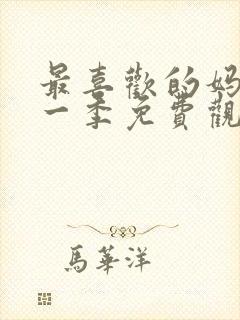 最喜歡的媽
一季免費觀
馬華洋